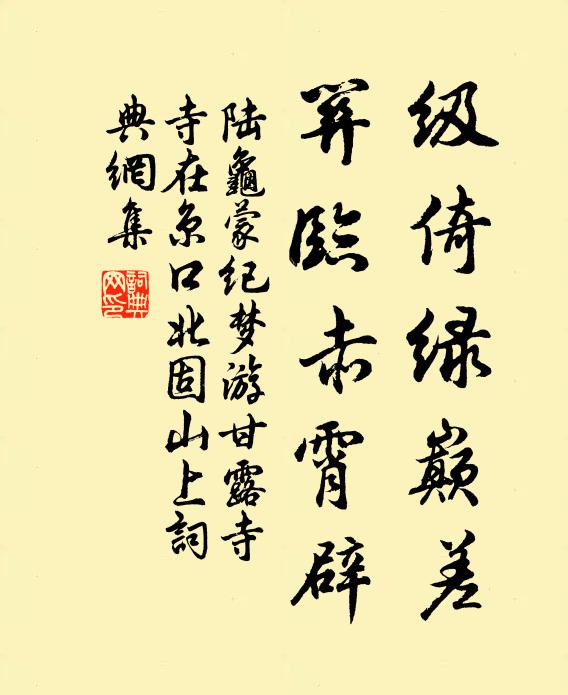 级倚绿巅差
筭临赤霄辟
陆龜蒙纪梦游甘露寺
寺在京口北固山上詞
典網集
詞典网印